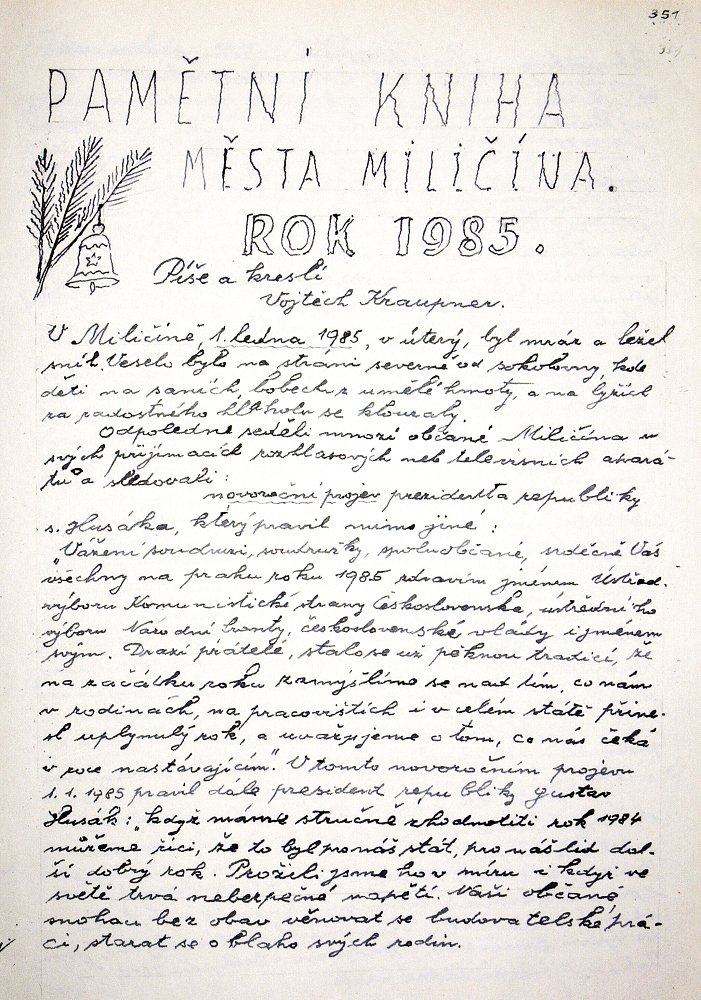 351
PAMĚTNÍ KNIHA
MĚSTA MILIČÍNA.
ROK 1985.
Píše a kreslí
Vojtěch Kraupner.
V Miličíně, 1. ledna 1985, v úterý, byl mráz a ležel
sníh. Veselo bylo na stráni severně od sokolovny, kde
děti na saních, bobech z umělé hmoty, a na lyžích
za radostného hlaholu se klouzaly.
Odpoledne seděli mnozí občané Miličína u
svých přijímacích rozhlasových neb televisních apará-
tů a sledovali:
novoroční projev prezidenta republiky
s. Husáka, který pravil mimo jiné:
"Vážení soudruzi, soudružky, spoluobčané, srdečně Vás
všechny na prahu roku 1985 zdravím jménem Ústřed.
výboru Komunistické strany Československa, ústředního
výboru Národní fronty, československé vlády i jménem
svým. Drazí přátelé, stalo se už pěknou tradicí, že
na začátku roku zamyslíme se nad tím, co nám
v rodinách, na pracovištích i v celém státě přine-
sl uplynulý rok, a uvažujeme o tom, co nás čeká
v roce nastávajícím". V tomto novoročním projevu
1.1.1985 pravil dále president republiky Gustav
Husák: "když máme stručně zhodnotiti rok 1984
můžeme říci, že to byl pro náš stát, pro náš lid dal-
ší dobrý rok. Prožili jsme ho v míru i když ve
světě trvá nebezpečné napětí. Naši občané
mohou bez obav věnovat se budovatelské prá-
ci, starat se o blaho svých rodin.